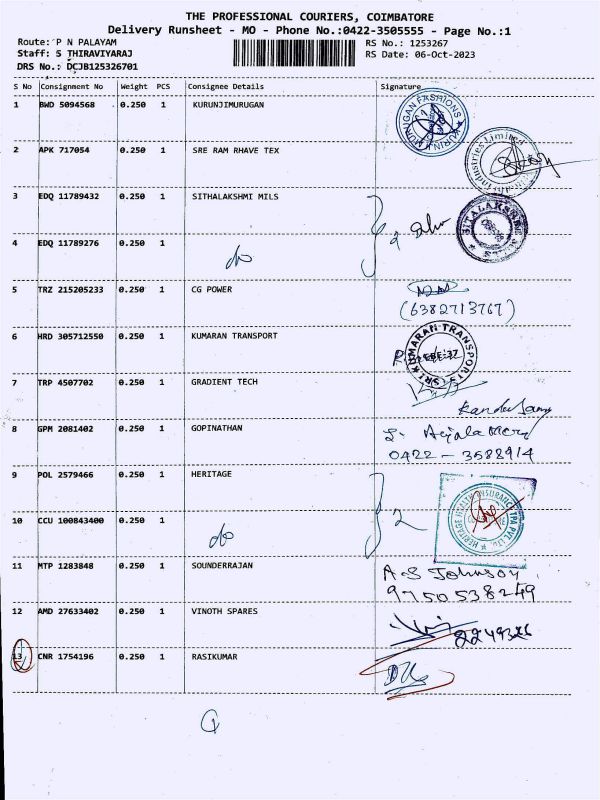 THE PROFESSIONAL COURIERS, COIMBATORE
Delivery Runsheet - MO - Phone No.:0422-3505555 - Page No.:1
Route: P N PALAYAM
RS No.: 1253267
Staff: S THIRAVIYARAJ
RS Date: 06-Oct-2023
DRS No.: DCJB125326701
S No Consignment No Weight PCS Consignee Details Signature
1 BWD 5094568 0.250 1 KURUNJIMURUGAN
2 APK 717054 0.250 1 SRE RAM RHAVE TEX
3 EDQ 11789432 0.250 1 SITHALAKSHMI MILS
4 EDQ 11789276 0.250 1 do
2
5 TRZ 215205233 0.250 1 CG POWER
(6382713767)
6 HRD 305712550 0.250 1 KUMARAN TRANSPORT
SRI KUMARAN TRANSPORTS
7 TRP 4507702 0.250 1 GRADIENT TECH
8 GPM 2081402 0.250 1 GOPINATHAN
0422 - 3588914
9 POL 2579466 0.250 1 HERITAGE
10 CCU 100843400 0.250 1 do
2
HERITAGE HEALTH INSURANCE TPA PVT LTD.
11 MTP 1283848 0.250 1 SOUNDERRAJAN
A-S Johnson
9750538249
12 AMD 27633402 0.250 1 VINOTH SPARES
2249326
13 CNR 1754196 0.250 1 RASIKUMAR